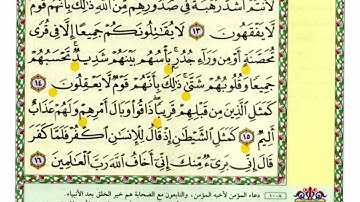 لَأَنتُمْ أَشَدُّ رَهْبَةً فِي صُدُورِهِم مِّنَ اللَّهِ ذَٰلِكَ بِأَنَّهُمْ قَوْمٌ
لَّا يَفْقَهُونَ ١٣ لَا يُقَاتِلُونَكُمْ جَمِيعًا إِلَّا فِي قُرًى
مُّحَصَّنَةٍ أَوْ مِن وَرَاءِ جُدُرٍ بَأْسُهُم بَيْنَهُمْ شَدِيدٌ تَحْسَبُهُمْ
جَمِيعًا وَقُلُوبُهُمْ شَتَّىٰ ذَٰلِكَ بِأَنَّهُمْ قَوْمٌ لَّا يَعْقِلُونَ ١٤
كَمَثَلِ الَّذِينَ مِن قَبْلِهِمْ قَرِيبًا ذَاقُوا وَبَالَ أَمْرِهِمْ وَلَهُمْ عَذَابٌ
أَلِيمٌ ١٥ كَمَثَلِ الشَّيْطَانِ إِذْ قَالَ لِلْإِنسَانِ اكْفُرْ فَلَمَّا كَفَرَ
قَالَ إِنِّي بَرِيءٌ مِّنكَ إِنِّي أَخَافُ اللَّهَ رَبَّ الْعَالَمِينَ ١٦
٨-١٠ دعاء المؤمن لأخيه المؤمن، والتابعون مع الصحابة هم خير الخلق بعد الأنبياء